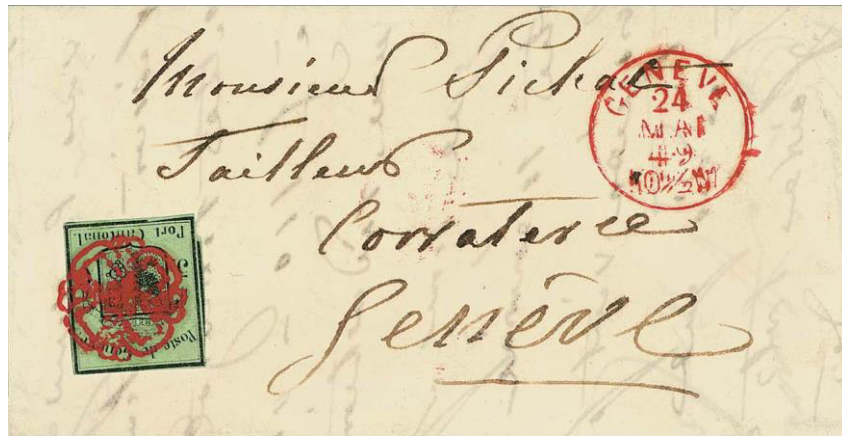 Monsieur Pichat
Tailleur
Corraterie
Genève
GENEVE
24
MAI
49
10½M
Port Cantonal
Poste de Genève